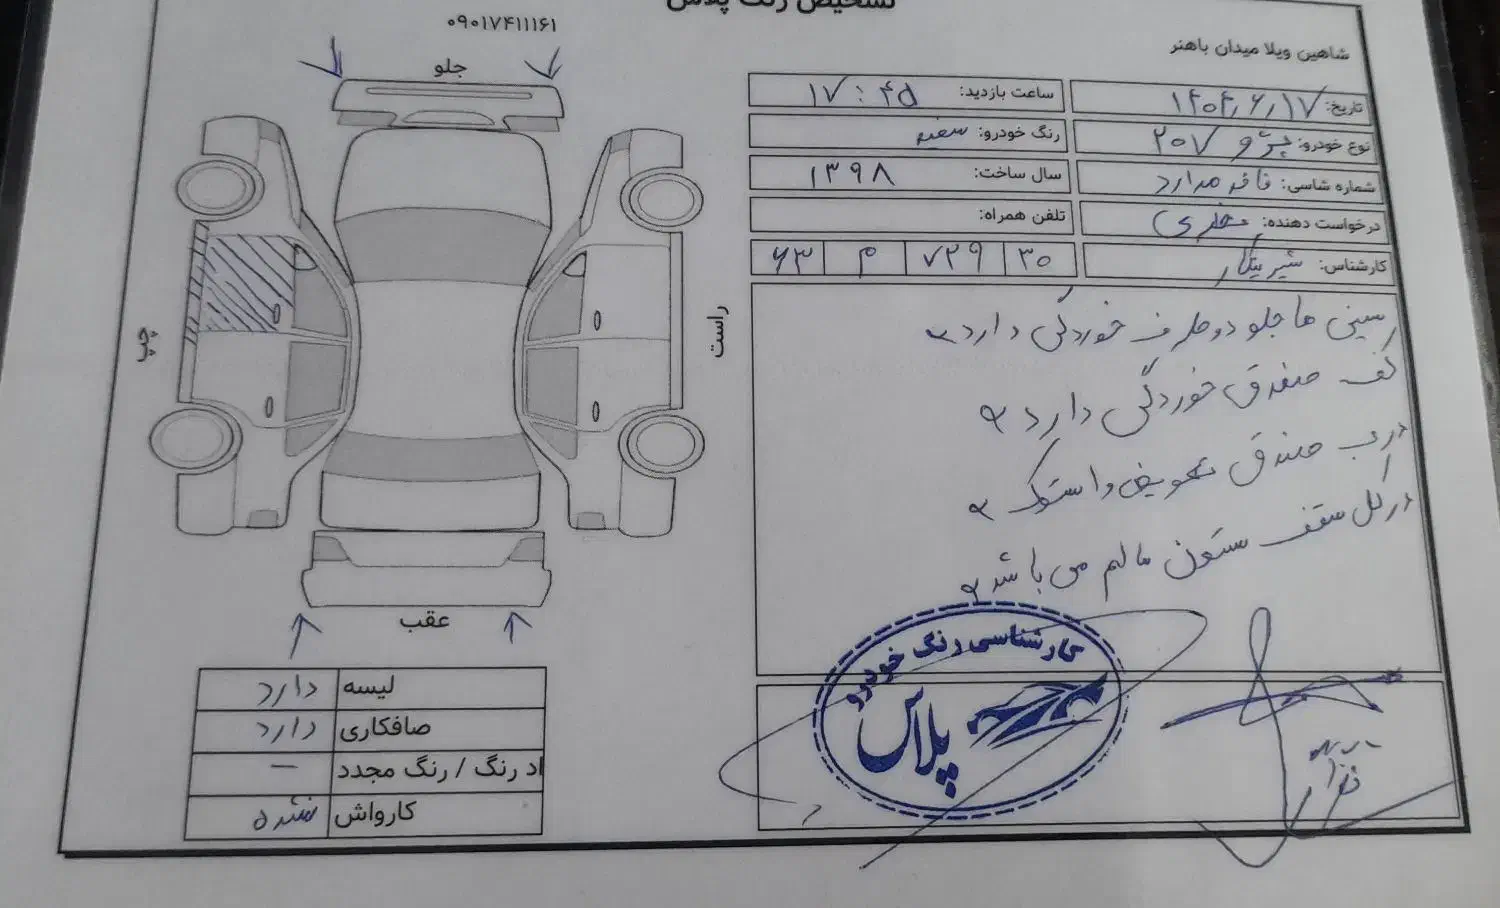 تشخیص رنگ پلاس
۰۹۰۱۷۴۱۱۱۶۱
شاهین ویلا میدان باهنر
تاریخ: ۱۴۰۴٫۶٫۱۷
ساعت بازدید: ۱۷:۴۵
نوع خودرو: پژو ۲۰۷
رنگ خودرو: سفید
شماره شاسی:
سال ساخت: ۱۳۹۸
درخواست دهنده:
تلفن همراه:
کارشناس:
۶۳ م ۷۲۹ ۳۰
سینی ها جلو دو طرف خوردگی دارد
کف صندق خوردگی دارد
درب صندق تعویض و استوک
در کل سقف ستون سالم می باشد
جلو
چپ
راست
عقب
لیسه دارد
صافکاری دارد
اد رنگ / رنگ مجدد –
کارواش نشده
کارشناسی رنگ خودرو
پلاس